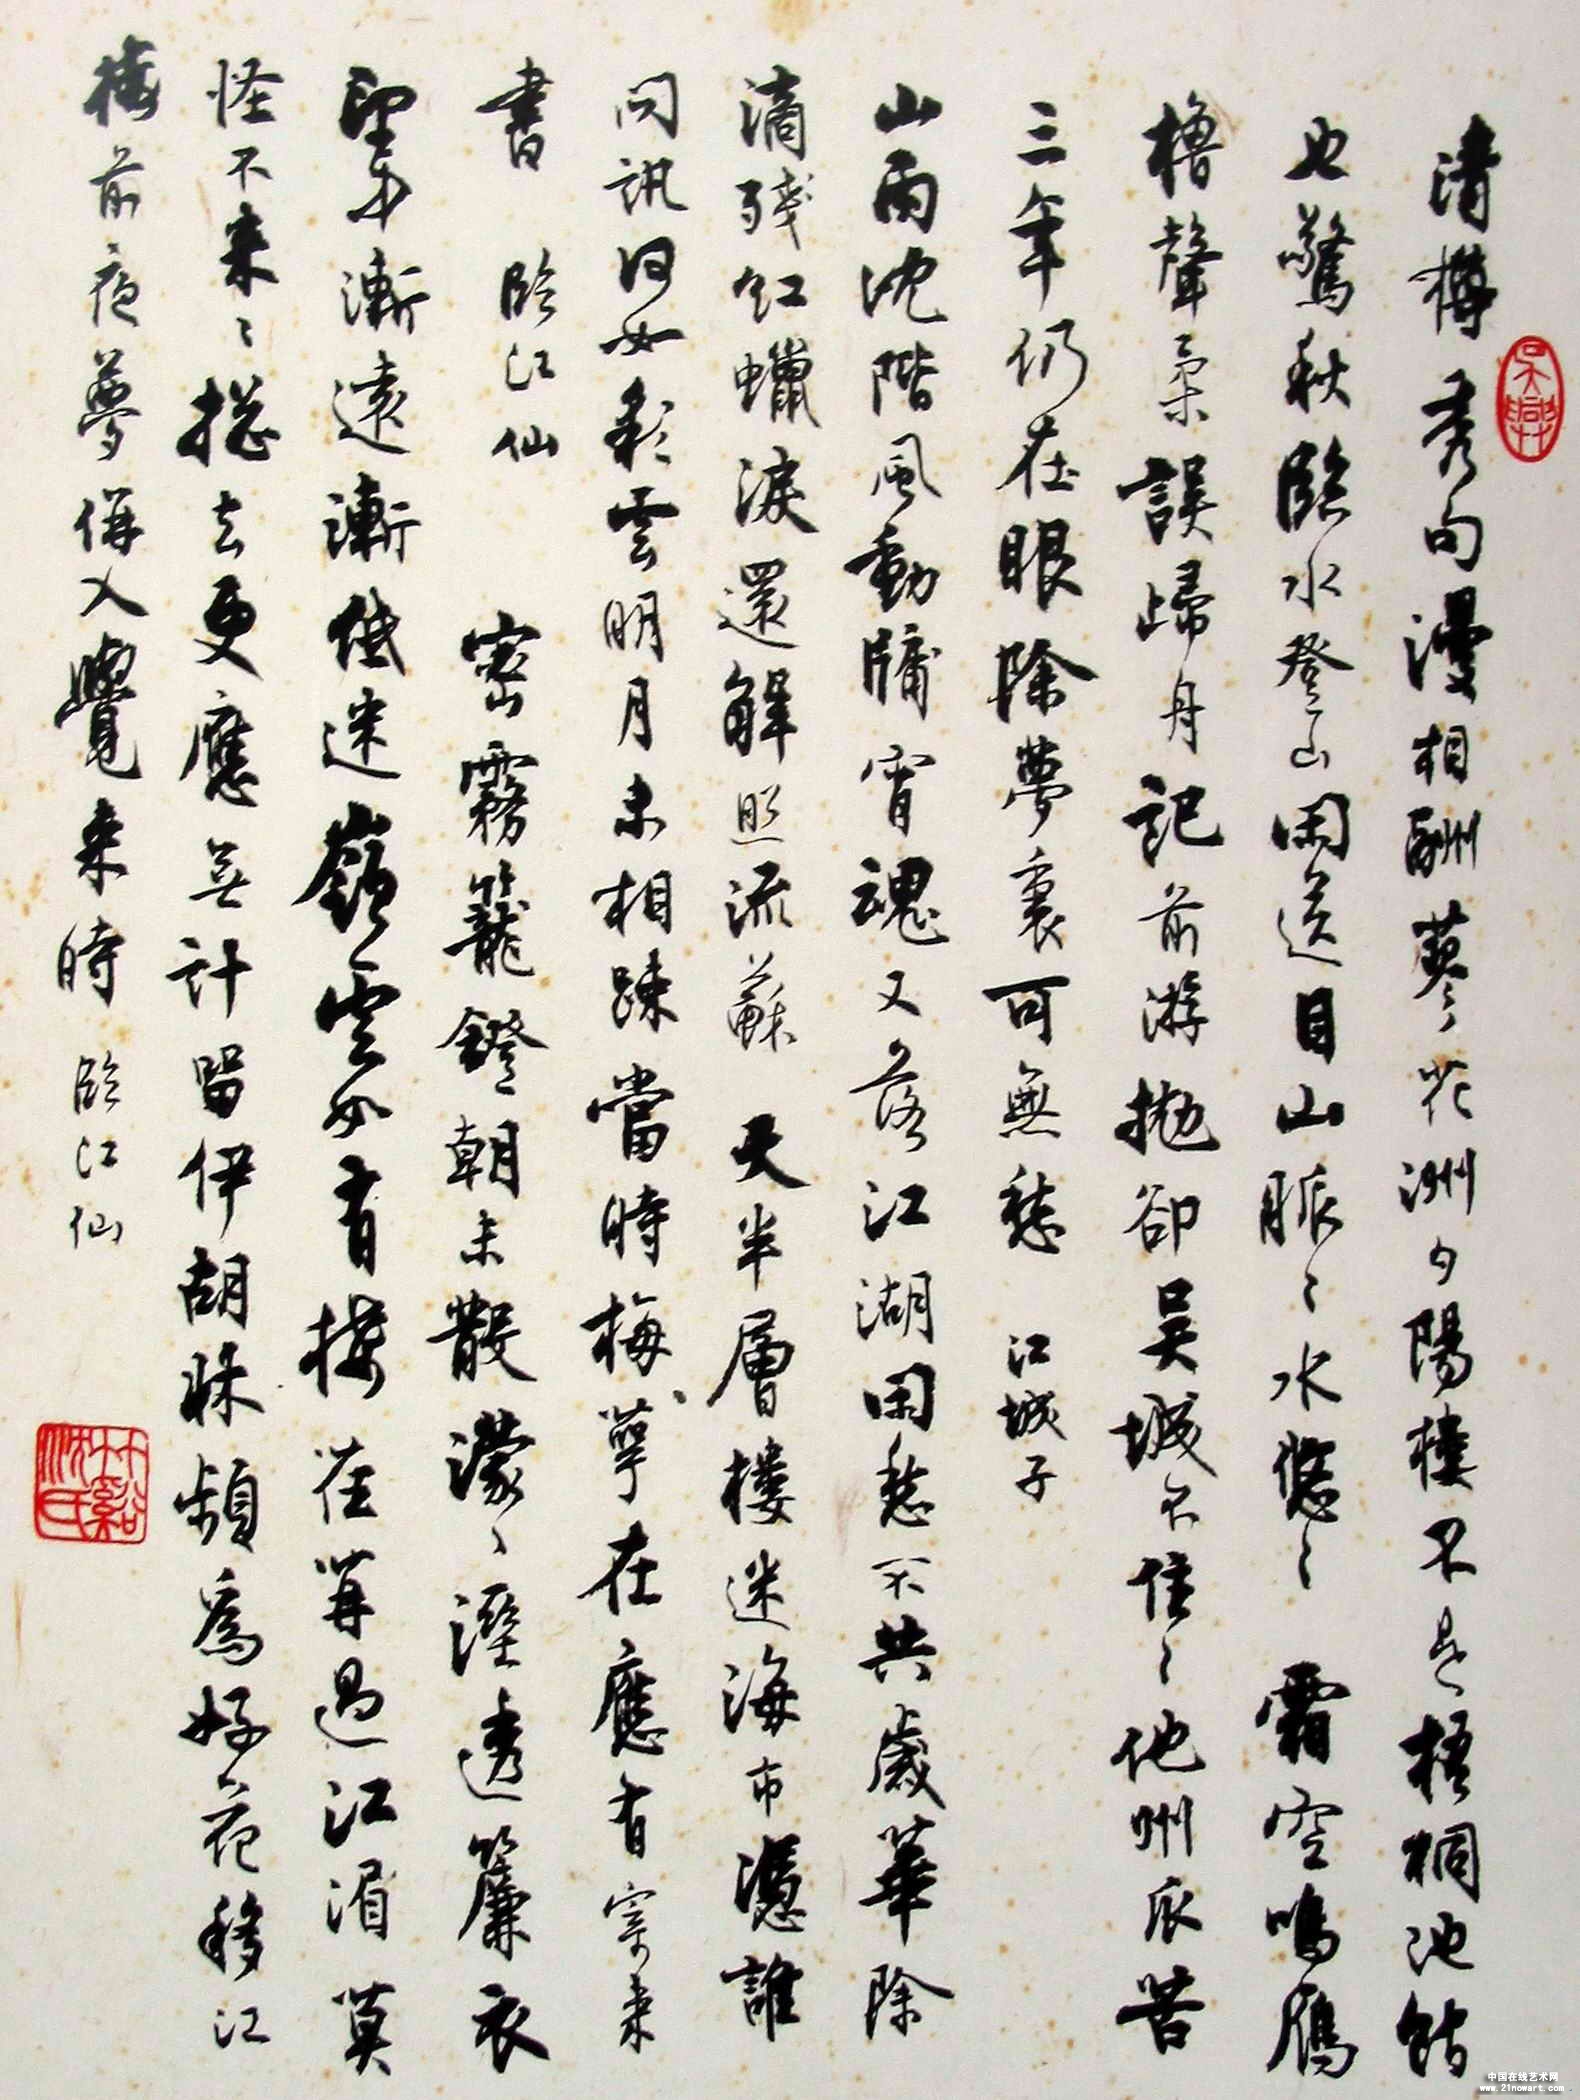 清樽秀句漫相酬蓼花洲夕陽樓不是梧桐池館
也驚秋臨水登山閑送目山脈〻水悠〻 霜空鳴雁
櫓聲柔誤歸舟記前游拋卻吳城不住〻他州屈苦
三年仍在眼除夢裏可無愁 江城子
山雨沈階風動牖宵魂又落江湖閑愁不共歲華除
滴殘紅蠟淚還解照流蘇 天半層樓迷海市憑誰
問訊何如彩雲明月未相疎當時梅萼在應有寄來
書 臨江仙 密霧籠鐙朝未散濛〻溼透簾衣
望中漸遠漸低迷嶺雲如有樣莫再過江湄 莫
怪不來〻搃去更應無計留伊胡牀頻為好花移江
梅前夜夢併入覺來時 臨江仙
吳興
竹谿沈氏
中国在线艺术网
www.21nowart.com